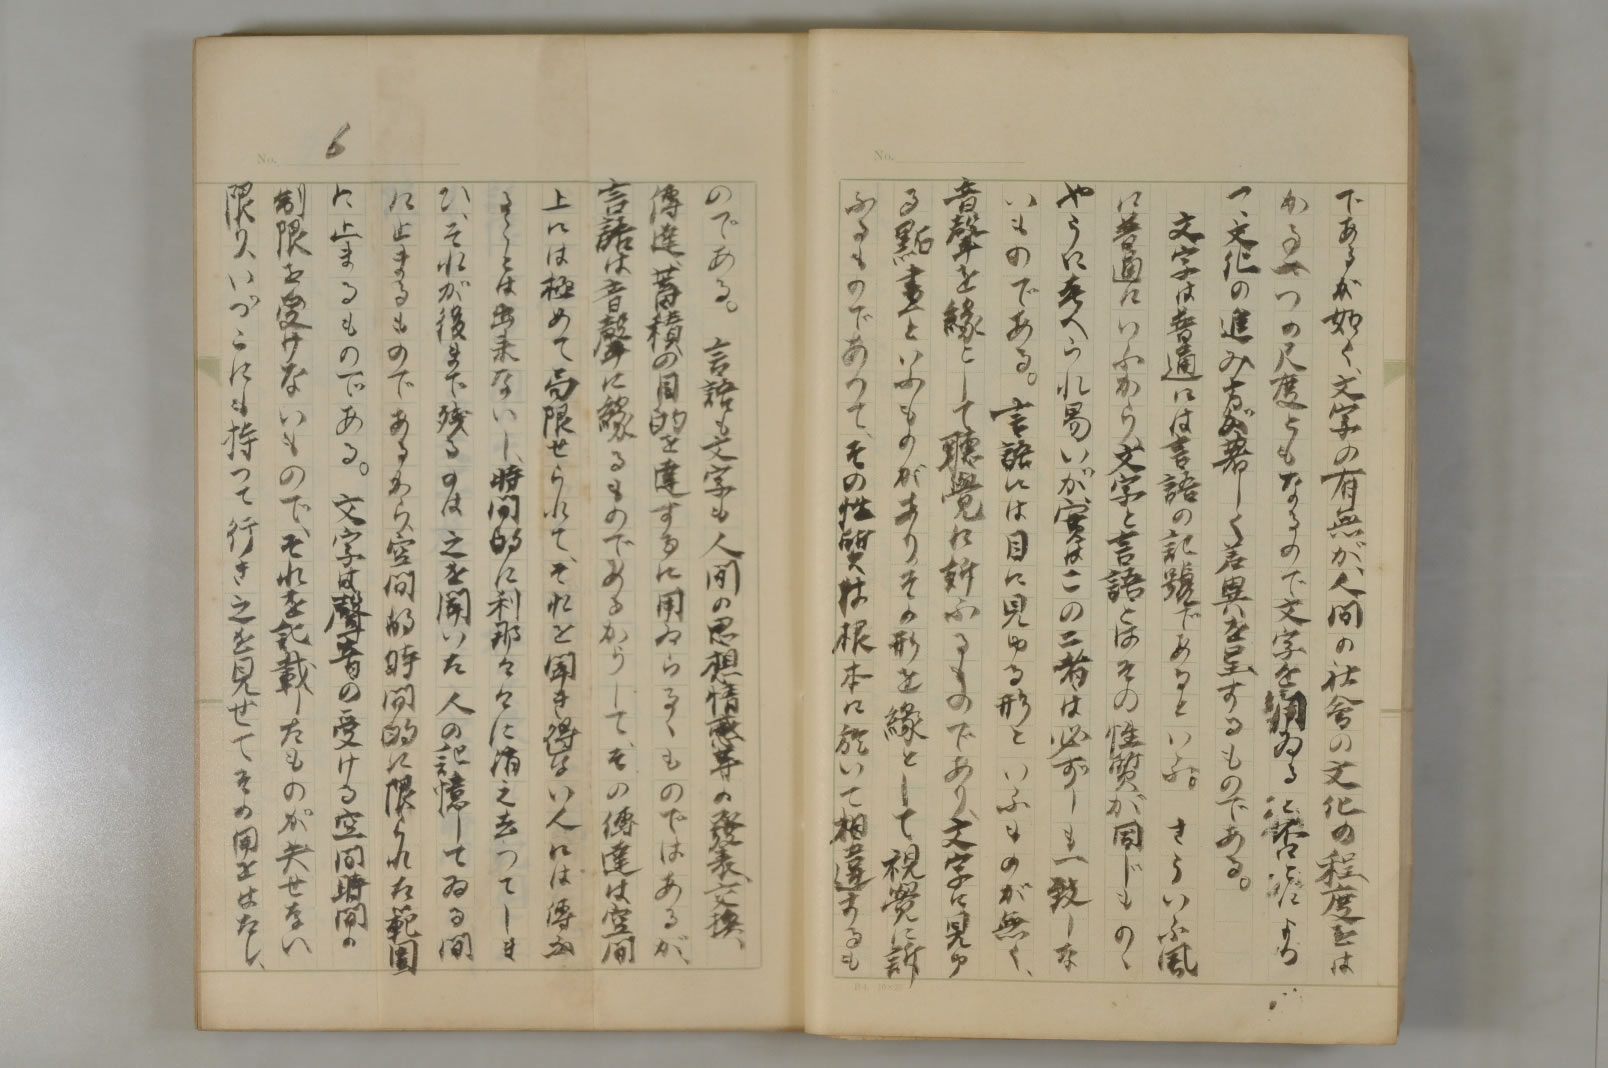 であるが如く、文字の有無が、人間の社會の文化の程度をは
かる一つの尺度ともなるので文字を用ゐると否とによ
つて、文化の進み方が著しく差異を呈するものである。
文字は普通には言語の記號であるといふ。さういふ風
に普通にいふから文字と言語とはその性質が同じもの、
やうに考へられ易いが、實はこの二者は必ずしも一致しな
いものである。言語には目に見ゆる形といふものが無く、
音聲を緣として聽覺に訴ふるものであり、文字は見ゆ
る點畫といふものがありその形を緣として視覺に訴
ふるものであつて、その性質は根本に於いて相違するも
No.
6
No.
のである。言語も文字も人間の思想情感等の發表、交換、
傳達、蓄積の目的を達するに用ゐらるゝものではあるが、
言語は音聲に緣るものであるからして、その傳達は空間
上には極めて局限せられて、それを聞き得ない人には傳ふ
ることは出來ないし、時間的に刹那々々に消え去つてしま
ひ、それが後まで殘るのは之を聞いた人の記憶してゐる間
に止まるものであるから空間的時間的に限られた範圍
に止まるものである。文字は聲音の受ける空間時間の
制限を受けないもので、それを記載したものが失せない
限り、いづこにも持つて行き之を見せてその用をはたし、